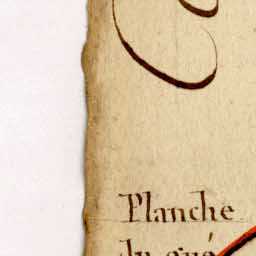 Planche
du gué